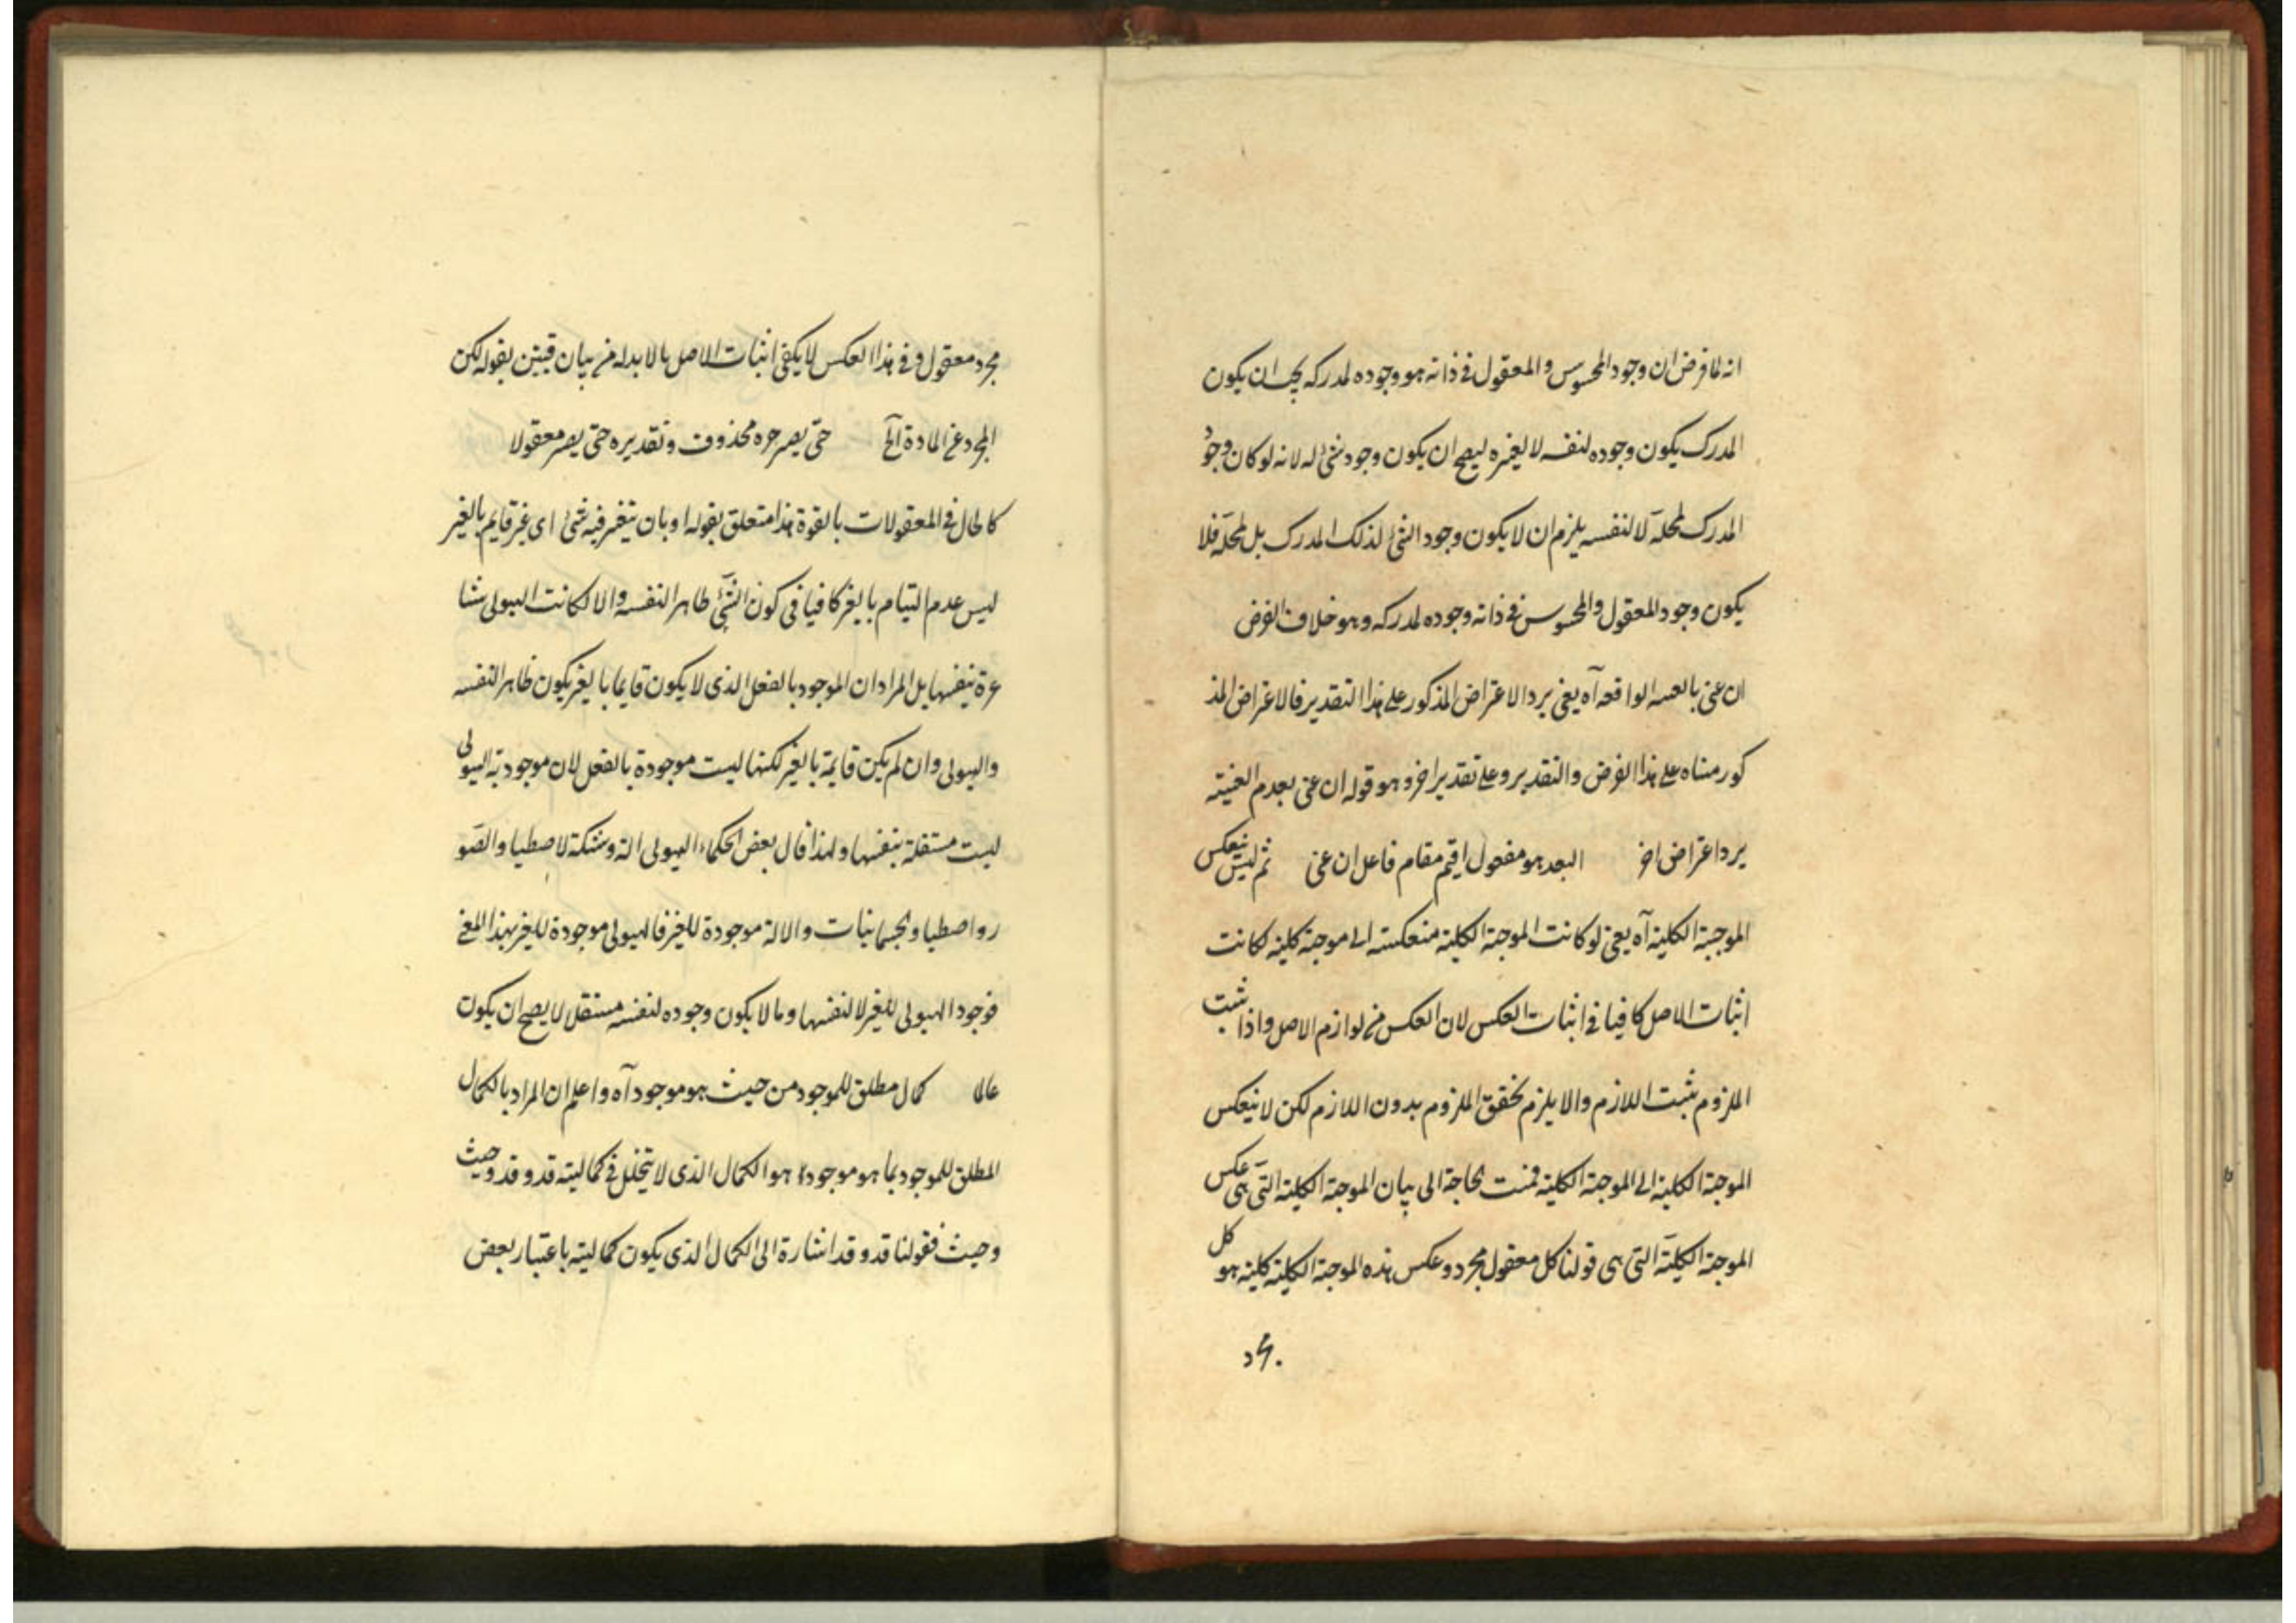 انه لما فرض ان وجود المحسوس والمعقول فى ذاته هو وجوده لمدركه يجب ان يكون
المدرك يكون وجوده لنفسه لا لغيره ليصح ان يكون وجود شئ له لانه لو كان وجود
المدرك لمحله لا لنفسه يلزم ان لا يكون وجود الشئ لذلك المدرك بل لمحله فلا
يكون وجود المعقول والمحسوس فى ذاته وجوده لمدركه وهو خلاف الفرض
ان عنى الواقعه آه يعنى يرد الاعتراض المذكور على هذا التقدير فالاعتراض المذ
كور على هذا الفرض والتقدير وعلى تقدير اخر وهو قوله ان عنى بعدم الغيبته
يرد اعتراض اخر البعد هو مفعول اقيم مقام فاعل ان عنى ثم ليس ينعكس
الموجبة الكلية آه يعنى لو كانت الموجبة الكلية منعكسة الى موجبة كلية لكانت
اثبات الاصل كافيا فى اثبات العكس لان العكس من لوازم الاصل واذا ثبت
الملزوم ثبت اللازم والا يلزم تحقق الملزوم بدون اللازم لكن لا ينعكس
الموجبة الكلية الى الموجبة الكلية فمست لحاجة الى بيان الموجبة الكلية التى هى عكس
الموجبة الكلية التى هى قولنا كل معقول مجرد وعكس هذه الموجبة الكلية كلية هو كل
مجرد
مجرد معقول وفى هذا العكس لا يكفى اثبات الاصل بل لا بد له من بيان فبين بقوله لكن
المجرد عن المادة الخ حتى يصر حره محذوف وتقديره حتى يصر معقولا
كالحال فى المعقولات بالقوة هذا متعلق بقوله او بان يتغير فيه شئ اى غير قايم بالغير
ليس عدم القيام بالغير كافيا فى كون الشئ ظاهرا لنفسه والا لكانت الهيولى شا
عرة بنفسها بل المراد ان الموجود بالفعل الذى لا يكون قايما بالغير يكون ظاهرا لنفسه
والهيولى وان لم يكن قايمة بالغير لكنها ليست موجودة بالفعل لان موجودية الهيولى
ليست مستقلة بنفسها ولهذا قال بعض الحكماء الهيولى الة وشبكة لاصطياد الصو
ر واصطياد الجسمانيات والالة موجودة للغير فالهيولى موجودة للغير بهذا المعنى
فوجود الهيولى للغير لا لنفسها وما لا يكون وجوده لنفسه مستقلا لا يصح ان يكون
عالما كمال مطلق للموجود من حيث هو موجود آه واعلم ان المراد بالكمال
المطلق للموجود بما هو موجود هو الكمال الذى لا يتخلل فى كماليته قد وقد وحيث
وحيث فقولنا قد وقد اشارة الى الكمال الذى يكون كماليته باعتبار بعض